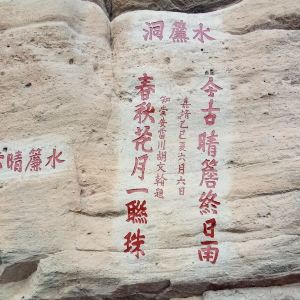 水簾洞
今古晴簷終日雨
嘉靖乙巳夏六月六日
知崇安雷川胡文翰題
春秋花月一聯珠
水簾晴